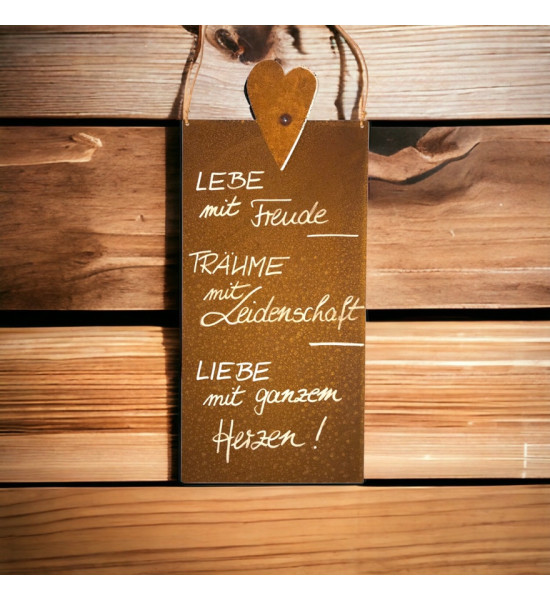 LEBE
mit Freude
TRÄUME
mit
Leidenschaft
LIEBE
mit ganzem
Herzen!